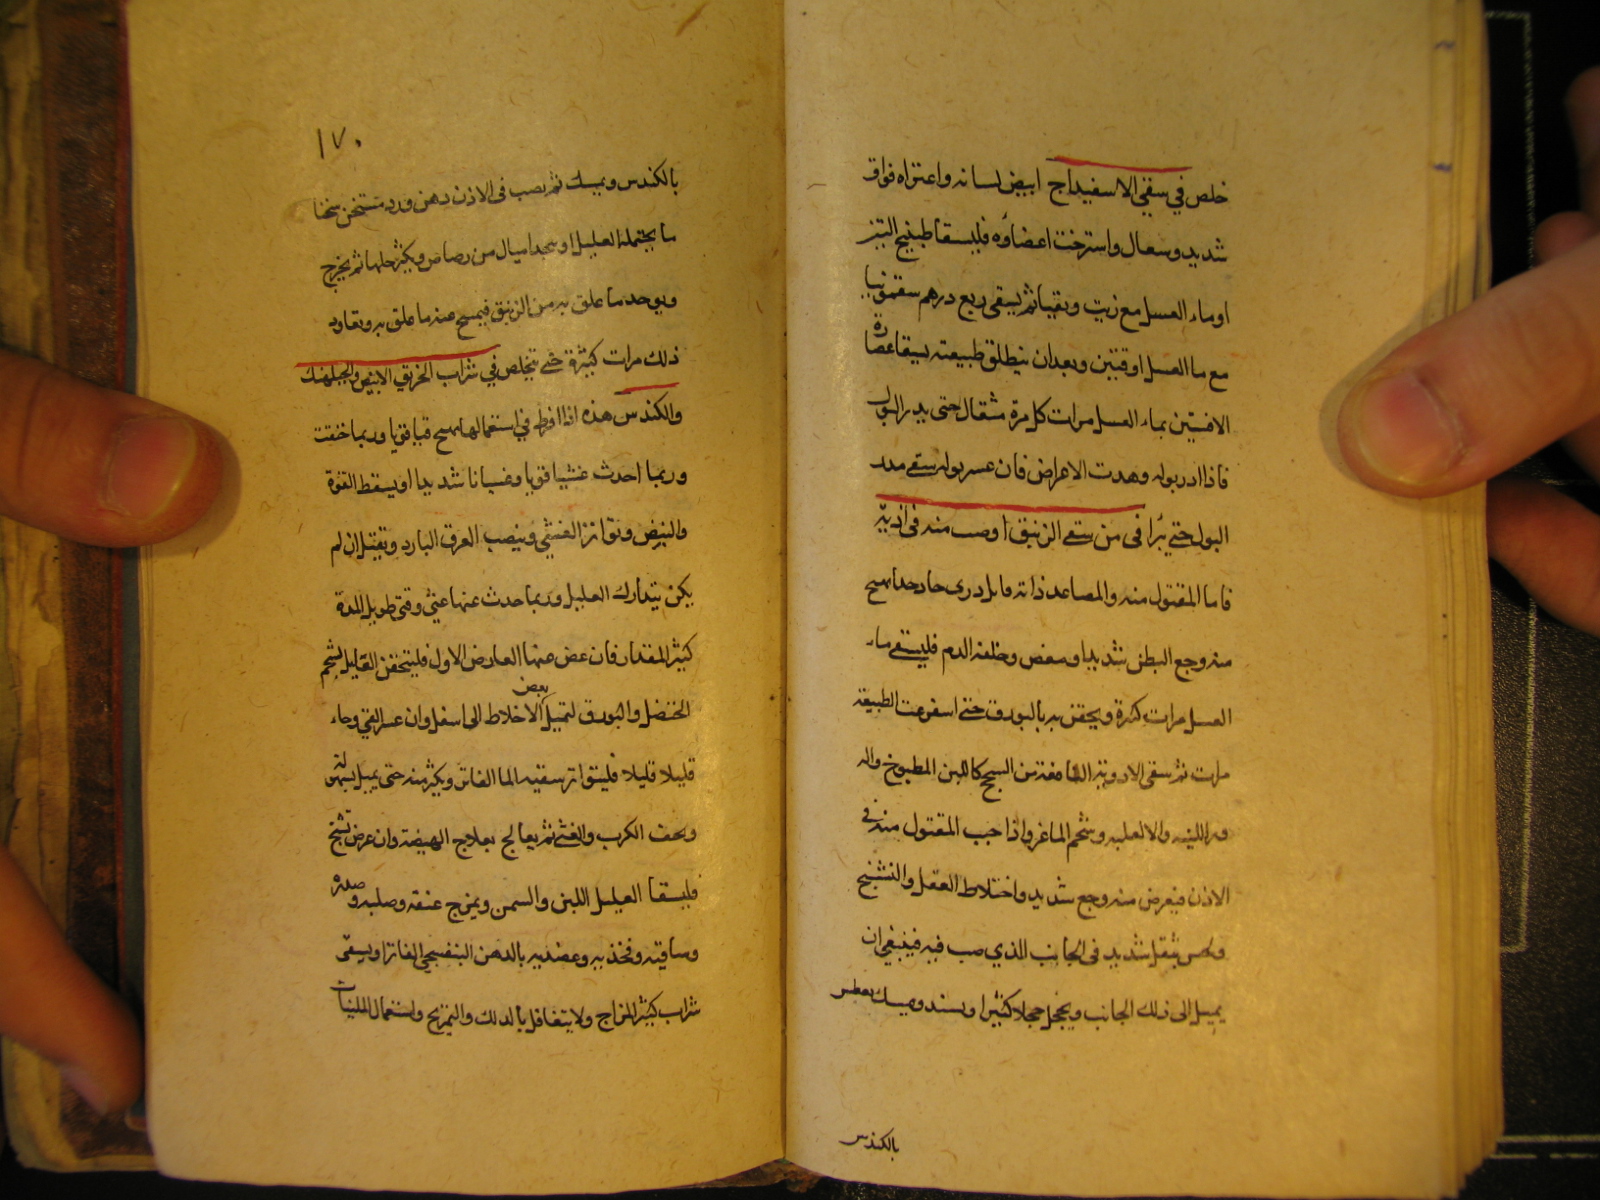 خلص في سقي الاسفيداج ابيض لسانه واعتراه فواق
شديد وسعال واسترخت اعضاؤه فليسقا طبيخ التين
او ماء العسل مع زيت ويقيا ثم يسقى ربع درهم سقمونيا
مع ما العسل اوقيتين وبعد ان ينطلق طبيعته يسقا عصارة
الافسنتين بماء العسل مرات كل مرة مثقال حتى يدر البول
فاذا ادر بوله وهدت الاعراض فان عسر بوله سقى مدد
البول حتى يبرا في من سقى الزنبق او صب منه في اذنيه
فاما المقتول منه والمصاعد فانه قاتل ردى حاد جدا يهيج
منه وجع البطن شديدا ومغص وخلفة الدم فليسقى ماء
العسل مرات كثيرة ويحقن به بالبورق حتى اسفرغت الطبيعة
مرات ثم سقى الادوية النافعة من السحج كاللبن المطبوخ
والالعبه وشحم الماعز واذا صب المقتول منه في
الاذن فيعرض منه وجع شديد واختلاط العقل والتشنج
ويحس بثقل شديد في الجانب الذي صب فيه فينبغي ان
يميل الى ذلك الجانب ويحجل حجلا كثيرا ويسند ويمسك بعطس
بالكندس
١٧٠
بالكندس ويمسك ثم يصب في الاذن دهن ورد مسخن سخنا
ما يحتمله العليل او يتخذ اميال من رصاص ويكثر حلها ثم يخرج
ويوجد ما علق به من الزنبق فيمسح عنه ما علق به ويعاود
ذلك مرات كثيرة حتى يتخلص في شراب الخربق الابيض والجبلهنك
والكندس هذه اذا افرط في استعمالها يهيج قيا قويا وربما خنقت
وربما احدث غشيا قويا وغسيانا شديدا او يسقط القوة
والنبض وتواتر الغشي ويصب العرق البارد ويقتل ان لم
يكن يتدارك العليل وربما حدث عنها غشي وقي طويل المدة
كثير المقدار فان عرض عنها العارض الاول فليحقن العليل بشحم
الحنضل والبورق لتميل بعض الاخلاط الى اسفل وان عسر القي وجاء
قليلا قليلا فليتواتر سقيه الما الفاتر ويكثر منه حتى يميل بسهولة
ويخف الكرب والغثي ثم يعالج بعلاج الهيضة وان عرض تشنج
فليسقا العليل اللبن والسمن ويمزج عنقه وصلبه وصدره
وساقيه وفخذيه وعضديه بالدهن البنفسجي الفاتر او يسقى
شراب كثير المزاج ولا يتغافل بالدلك والتمريخ واستعمال الملينات